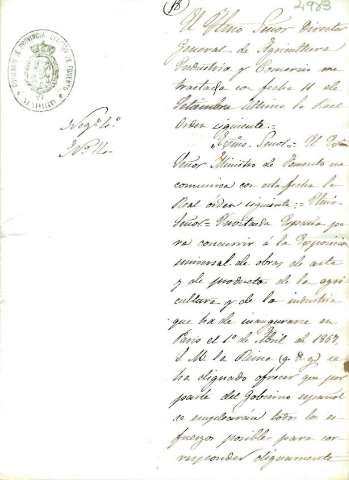 18
2983
GOBIERNO DE PROVINCIA
SECCION DE FOMENTO
El Ylmo Señor Director
General de Agricultura
Yndustria y Comercio me
traslada con fecha 11 de
Setiembre último la Real
Orden siguiente:=
Negdo. 2o.
No.
Exmo. Señor= El
Señor Ministro de Fomento me
comunica con esta fecha la
Real órden siguiente:= Ylmo
Señor= Ynvitada España pa
ra concurrir á la Exposicion
universal de obras de arte
y de productos de la agri
cultura y de la industria
que ha de inaugurarse en
Paris el 1o. de Abril de 1867,
S. M. la Reina (q. D. g.) se
ha dignado ofrecer que por
parte del Gobierno español
se emplearán todos los es
fuerzos posibles para cor
responder dignamente